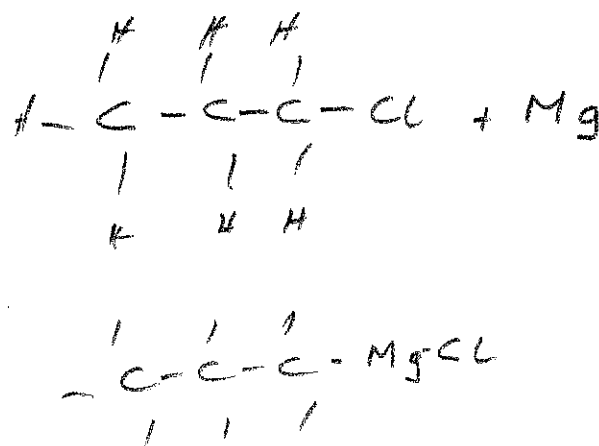 H H H
H - C - C - C - Cl + Mg
H H H
- C - C - C - Mg-Cl